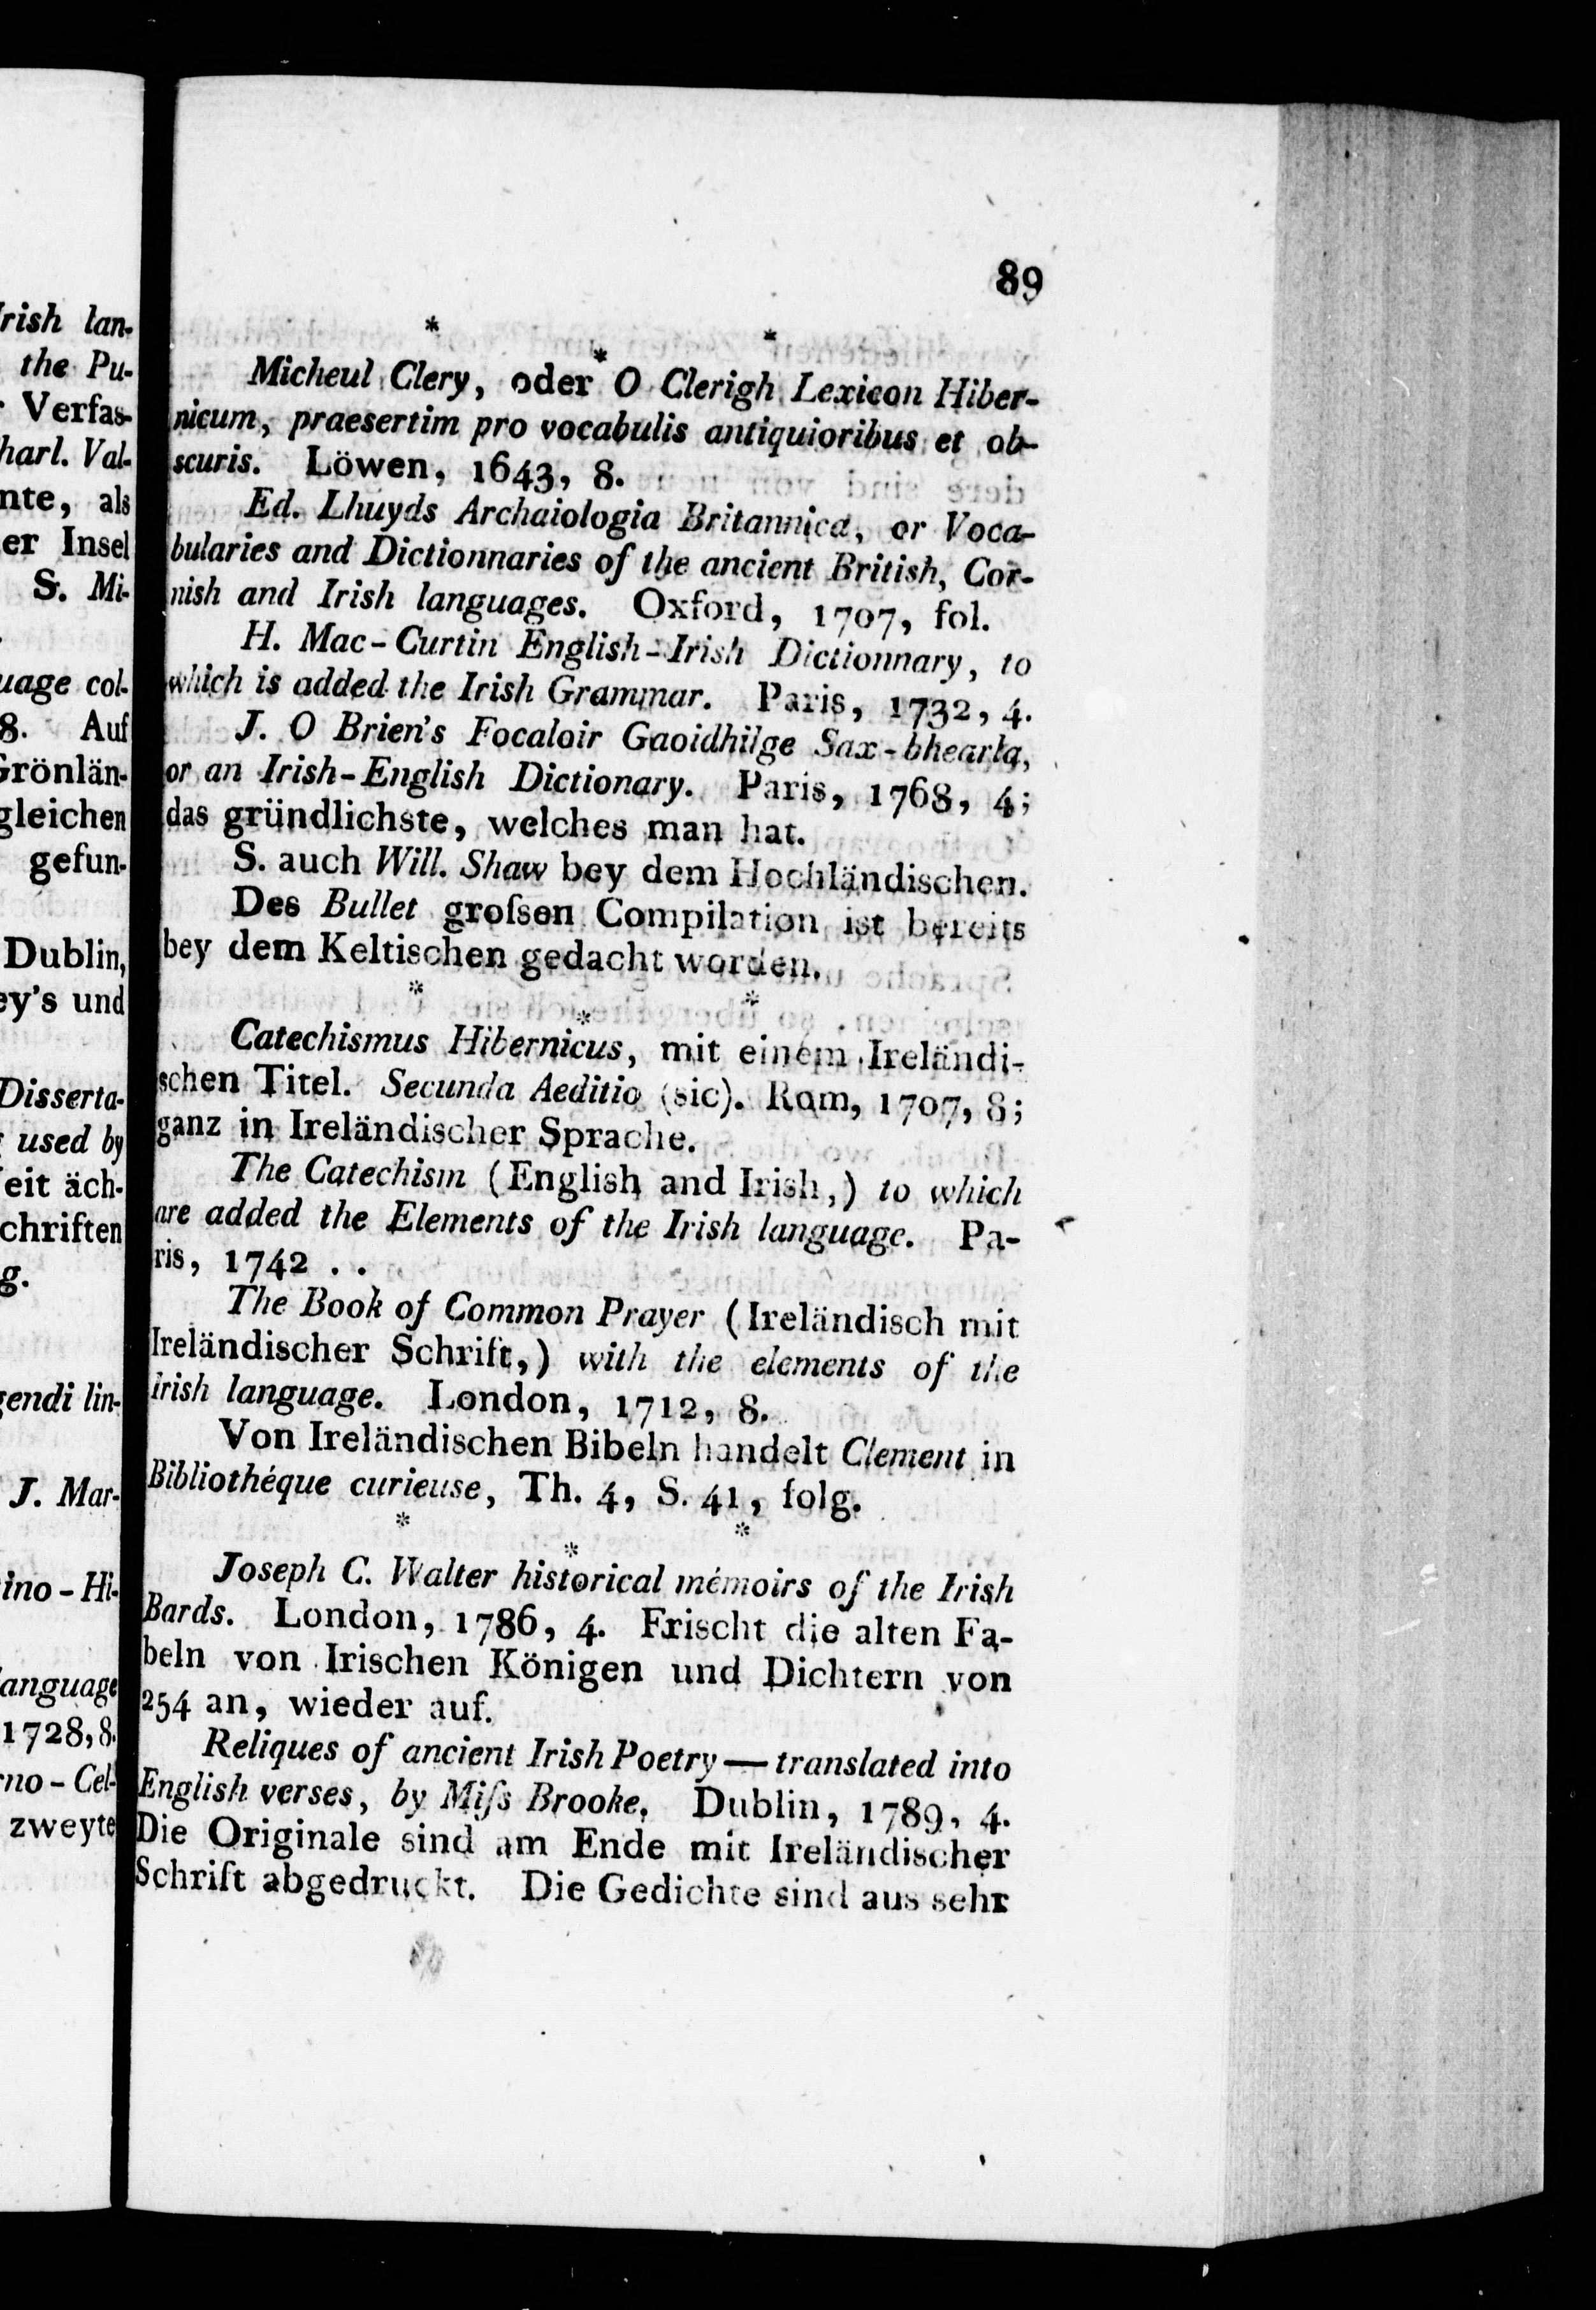 rish lan-
the Pu-
Verfas-
harl. Val-
nte, als
er Insel
S. Mi-
uage col-
8. Auf
Grönlän-
gleichen
gefun-
Dublin,
ey's und
Disserta-
used by
eit äch-
chriften
g.
gendi lin-
J. Mar-
ino - Hi-
language
1728, 8.
no - Cel-
zweyte
89
* * *
Micheul Clery, oder O Clerigh Lexicon Hiber-
nicum, praesertim pro vocabulis antiquioribus et ob-
scuris. Löwen, 1643, 8.
Ed. Lhuyds Archaiologia Britannica, or Voca-
bularies and Dictionnaries of the ancient British, Cor-
nish and Irish languages. Oxford, 1707, fol.
H. Mac-Curtin English-Irish Dictionnary, to
which is added the Irish Grammar. Paris, 1732, 4.
J. O Brien's Focaloir Gaoidhilge Sax-bhearla,
or an Irish-English Dictionary. Paris, 1768, 4;
das gründlichste, welches man hat.
S. auch Will. Shaw bey dem Hochländischen.
Des Bullet groſsen Compilation ist bereits
bey dem Keltischen gedacht worden.
* * *
Catechismus Hibernicus, mit einem Ireländi-
schen Titel. Secunda Aeditio (sic). Rom, 1707, 8;
ganz in Ireländischer Sprache.
The Catechism (English and Irish,) to which
are added the Elements of the Irish language. Pa-
ris, 1742 . .
The Book of Common Prayer (Ireländisch mit
Ireländischer Schrift,) with the elements of the
irish language. London, 1712, 8.
Von Ireländischen Bibeln handelt Clement in
Bibliothéque curieuse, Th. 4, S. 41, folg.
* * *
Joseph C. Walter historical mémoirs of the Irish
Bards. London, 1786, 4. Frischt die alten Fa-
beln von Irischen Königen und Dichtern von
254 an, wieder auf.
Reliques of ancient Irish Poetry — translated into
English verses, by Miſs Brooke. Dublin, 1789, 4.
Die Originale sind am Ende mit Ireländischer
Schrift abgedruckt. Die Gedichte sind aus sehr